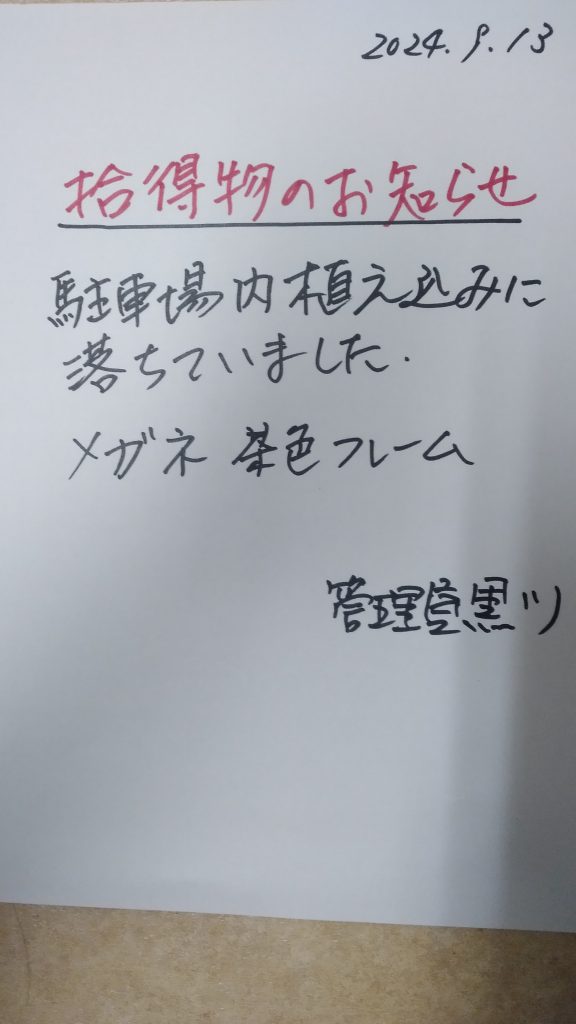 2024.9.13
拾得物のお知らせ
駐車場内植え込みに
落ちていました.
メガネ 茶色フレーム
管理室黒ツ